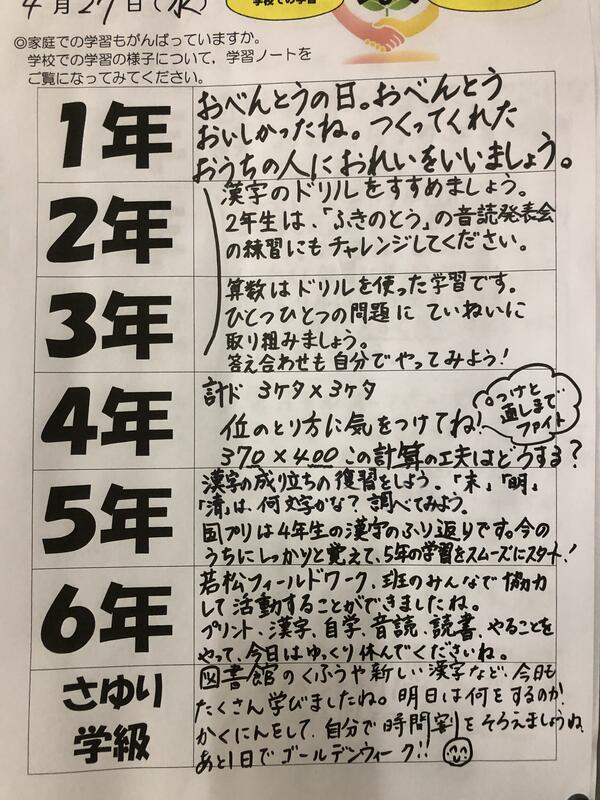 4月27日(水)
学校での学習
◎家庭での学習もがんばっていますか。
学校での学習の様子について，学習ノートを
ご覧になってみてください。
1年
おべんとうの日。おべんとう
おいしかったね。つくってくれた
おうちの人におれいをいいましょう。
2年
漢字のドリルをすすめましょう。
2年生は、「ふきのとう」の音読発表会
の練習にもチャレンジしてください。
3年
算数はドリルを使った学習です。
ひとつひとつの問題に ていねいに
取り組みましょう。
答え合わせも自分でやってみよう!
4年
計ド 3ケタ×3ケタ
位のとり方に気をつけてね!
○つけと
直しまで
ファイト
370×400 この計算の工夫はどうする?
5年
漢字の成り立ちの復習をしよう。「末」「明」
「清」は、何文字かな? 調べてみよう。
国プリは4年生の漢字のふり返りです。今の
うちにしっかりと覚えて、5年の学習をスムーズにスタート!
6年
若松フィールドワーク、班のみんなで協力
して活動することができましたね。
プリント、漢字、自学、音読、読書、やることを
やって、今日はゆっくり休んでくださいね。
さゆり
学級
図書館のくふうや新しい漢字など、今日も
たくさん学びましたね。明日は何をするのか
かくにんをして、自分で時間割をそろえましょうね
あと1日でゴールデンウィーク!!